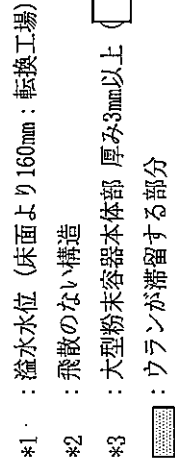 *1 : 溢水水位 (床面より160mm：転換工場)
*2 : 飛散のない構造
*3 : 大型粉末容器本体部 厚み3mm以上 (
: ウランが滞留する部分